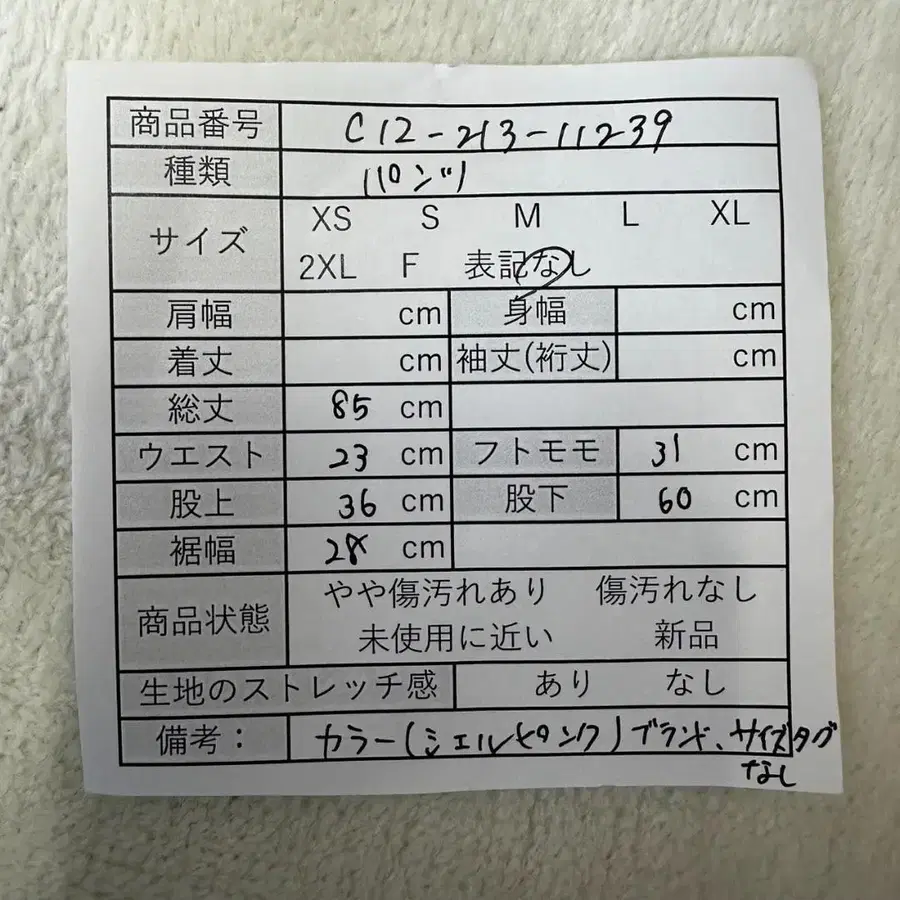 商品番号 C12-213-11239
種類 パンツ
サイズ XS S M L XL
2XL F 表記なし
肩幅 cm 身幅 cm
着丈 cm 袖丈(裄丈) cm
総丈 85 cm
ウエスト 23 cm フトモモ 31 cm
股上 36 cm 股下 60 cm
裾幅 28 cm
商品状態 やや傷汚れあり 傷汚れなし
未使用に近い 新品
生地のストレッチ感 あり なし
備考： カラー(シェルピンク)ブランド、サイズタグ
なし